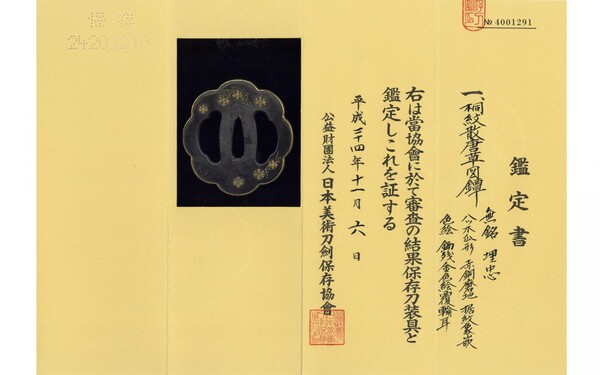 鑑定書
一、桐紋散唐草図鐔
無銘 埋忠
八ツ木瓜形 赤銅磨地 据紋象嵌
色絵 鋤残金色絵覆輪耳
右は當協會に於て審査の結果保存刀装具と
鑑定しこれを証する
平成二十四年十一月六日
公益財團法人 日本美術刀劍保存協會
№ 4001291
保存
24201210